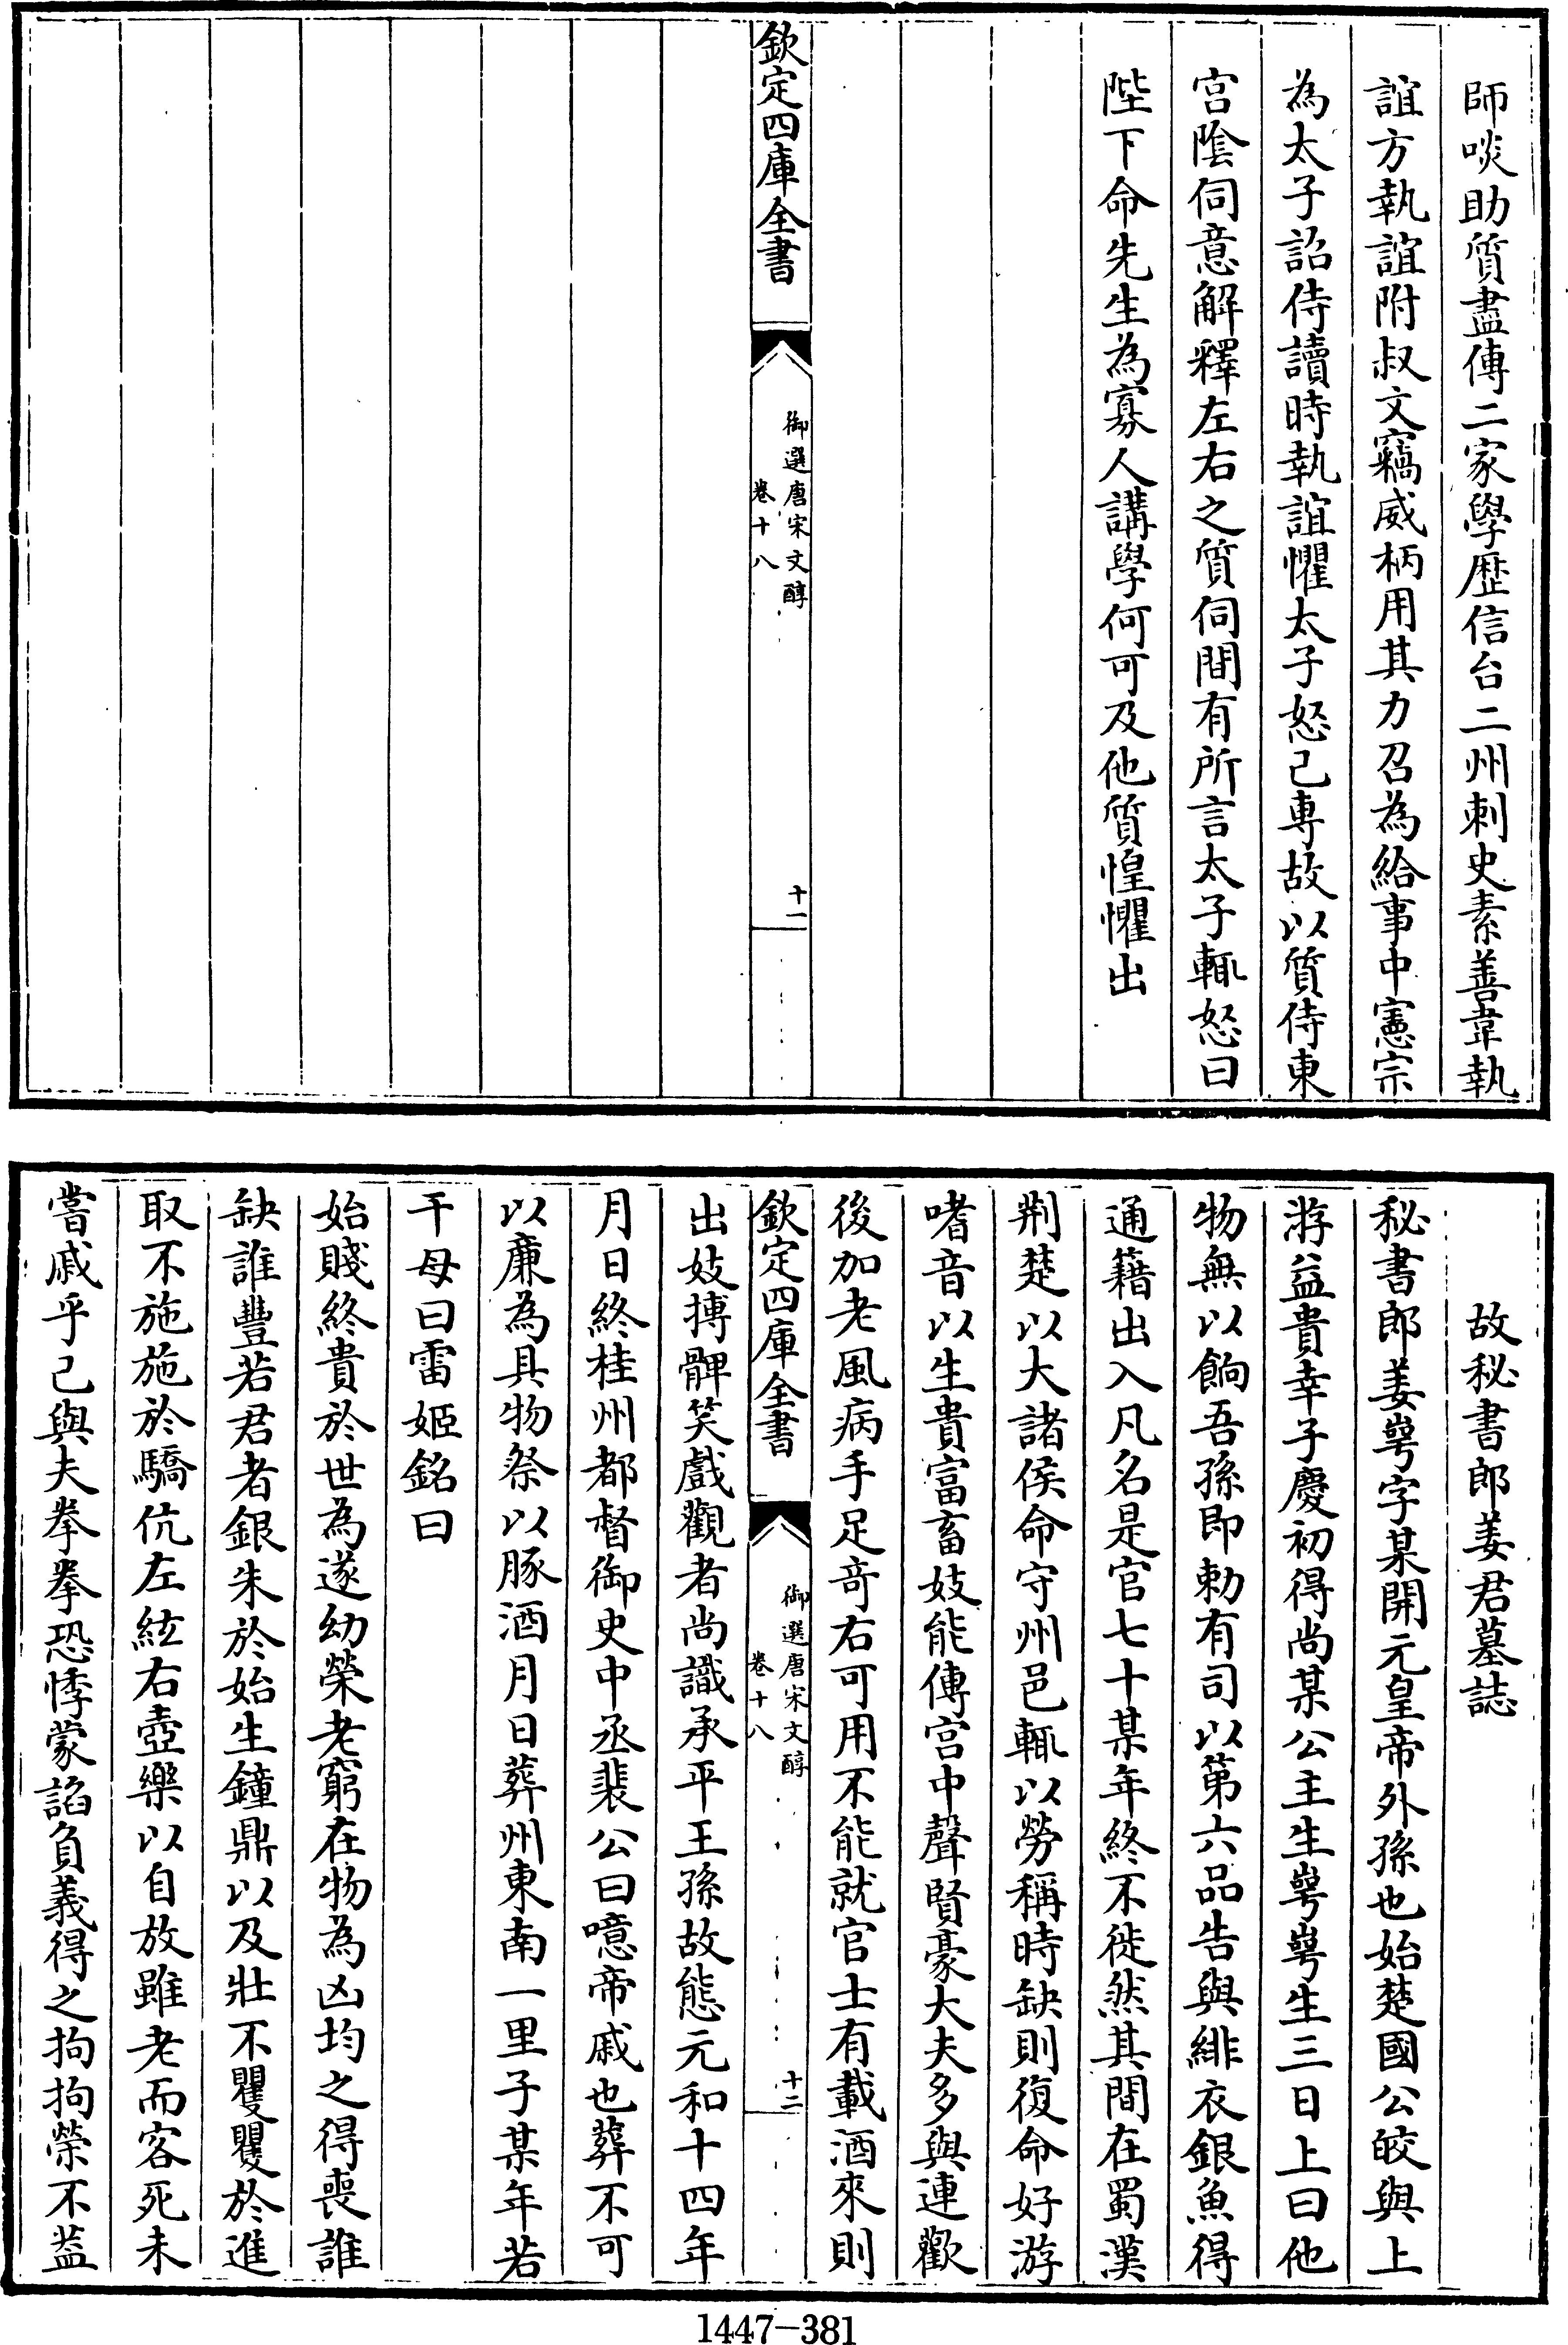 師啖助質盡傳二家學歷信台二州刺史素善韋執
誼方執誼附叔文竊威柄用其力召為給事中憲宗
為太子詔侍讀時執誼懼太子怒己專故以質侍東
宮陰伺意解釋左右之質伺間有所言太子輒怒曰
陛下命先生為寡人講學何可及他質惶懼出
欽定四庫全書
御選唐宋文醇
卷十八
十一
故秘書郎姜君墓誌
秘書郎姜崿字某開元皇帝外孫也始楚國公皎與上
游益貴幸子慶初得尚某公主生崿崿生三日上曰他
物無以餉吾孫即勅有司以第六品告與緋衣銀魚得
通籍出入凡名是官七十某年終不徙然其間在蜀漢
荆楚以大諸侯命守州邑輒以勞稱時缺則復命好游
嗜音以生貴富畜妓能傳宮中聲賢豪大夫多與連歡
後加老風病手足奇右可用不能就官士有載酒來則
欽定四庫全書
御選唐宋文醇
卷十八
十二
出妓搏髀笑戲觀者尚識承平王孫故態元和十四年
月日終桂州都督御史中丞裴公曰噫帝戚也葬不可
以廉為具物祭以豚酒月日葬州東南一里子某年若
干母曰雷姬銘曰
始賤終貴於世為遂幼榮老窮在物為凶均之得喪誰
缺誰豐若君者銀朱於始生鐘鼎以及壯不矍矍於進
取不施施於驕伉左絃右壺樂以自放雖老而客死未
嘗戚乎己與夫拳拳恐悸蒙諂負義得之拘拘榮不葢
1447-381